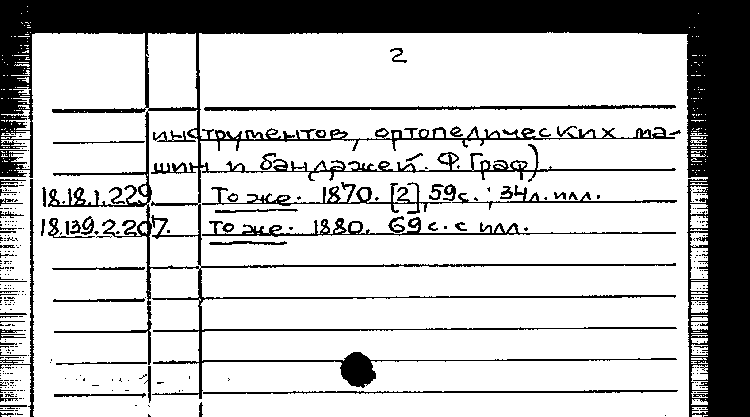 2
инструментов, ортопедических ма-
шин и бандажей. Ф. Граф).
18.18.1.229. То же. 1870. [2], 59с.; 34л. илл.
18.139.2.207. То же. 1880. 69с. с илл.